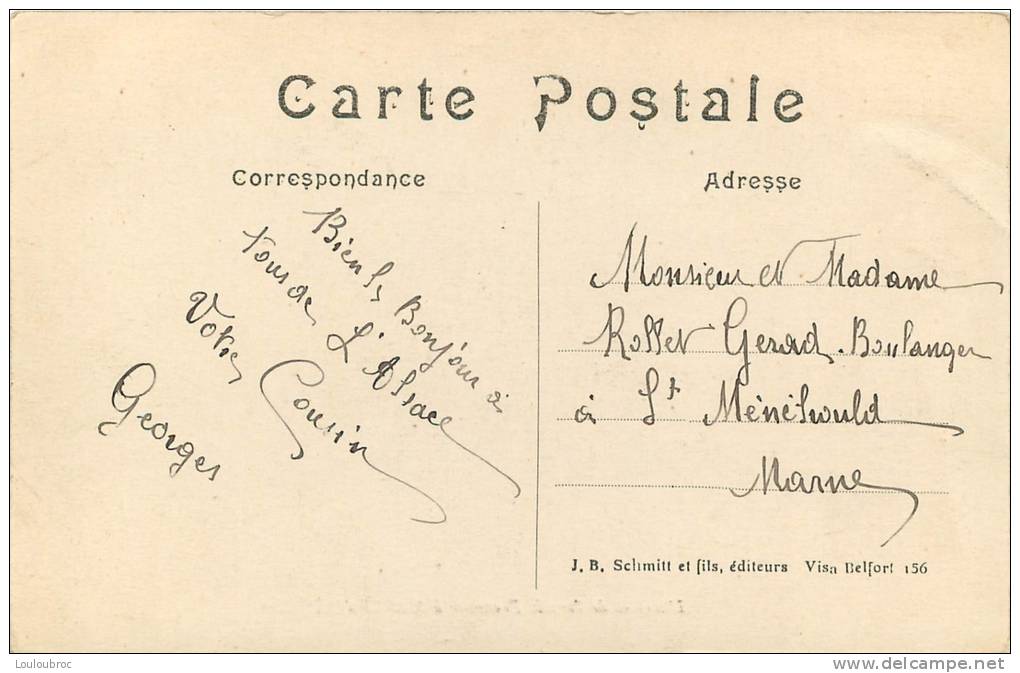 Carte Postale
Correspondance
Bien le Bonjour à
tous de L'Alsace
Votre Cousin
Georges
Adresse
Monsieur et Madame
Rollet Gerard. Boulanger
à St Ménéhould
Marne
J. B. Schmitt et fils, éditeurs Visa Belfort 156
Louloubroc
delcampe.net